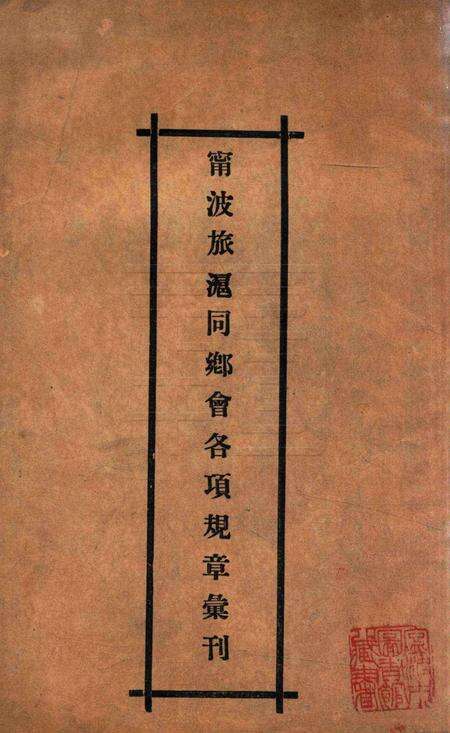 甯波旅滬同鄉會各項規章彙刊